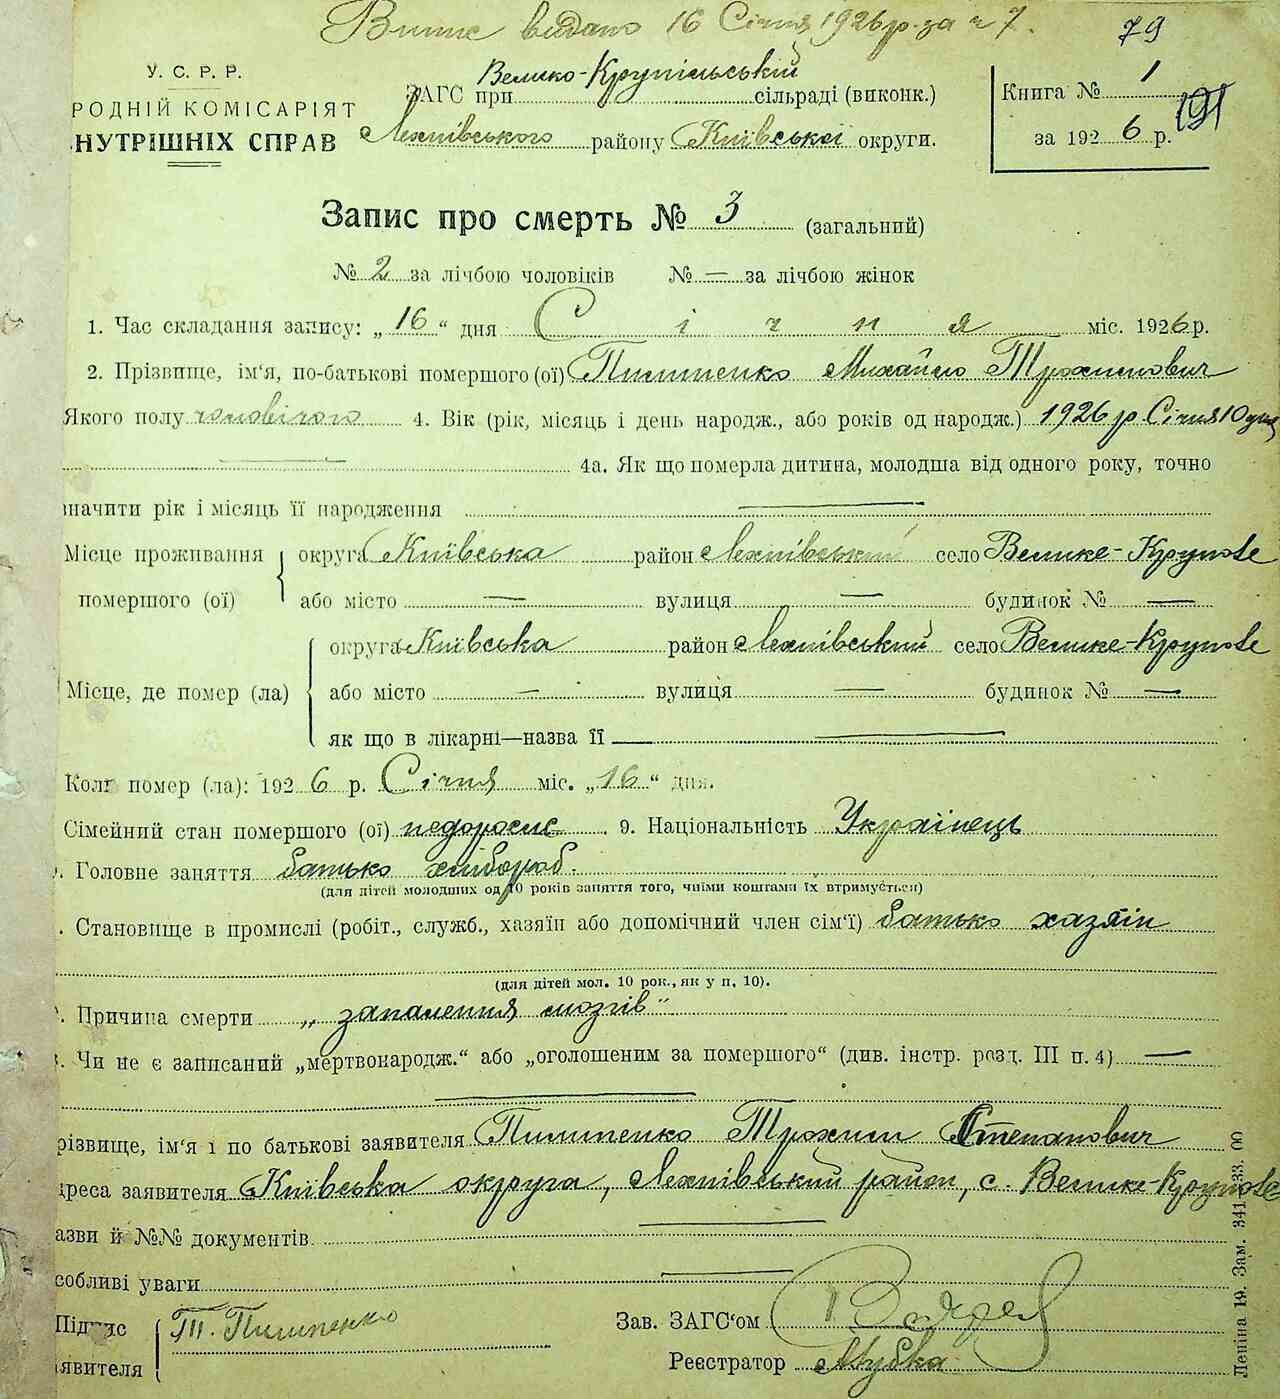 Випис видано 16 Січня 1926 р. за ч 7.
79
У. С. Р. Р.
РОДНІЙ КОМІСАРІЯТ
НУТРІШНІХ СПРАВ
ЗАГС при Велико-Крупільській сільраді (виконк.)
Яхнівського району Київської округи.
Книга № 1
191
за 1926 р.
Запис про смерть № 3 (загальний)
№ 2 за лічбою чоловіків № — за лічбою жінок
1. Час складання запису: „16“ дня Січня міс. 1926 р.
2. Прізвище, ім'я, по-батькові помершого (ої) Пилипенко Михайло Трохимович
Якого полу чоловічого 4. Вік (рік, місяць і день народж., або років од народж.) 1926 р Січня 10 дня
4а. Як що померла дитина, молодша від одного року, точно
значити рік і місяць її народження —
Місце проживання округа Київська район Яхнівський село Велике-Крупole
помершого (ої) або місто — вулиця — будинок № —
округа Київська район Яхнівський село Велике-Крупоle
Місце, де помер (ла) або місто — вулиця — будинок № —
як що в лікарні—назва її —
Коли помер (ла): 1926 р. Січня міс. „16“ дня.
Сімейний стан помершого (ої) недоросле 9. Національність Українець
. Головне заняття батько хлібороб.
(для дітей молодших од 10 років заняття того, чиїми коштами їх втримується)
. Становище в промислі (робіт., служб., хазяїн або допомічний член сім'ї) батько хазяїн
(для дітей мол. 10 рок., як у п. 10).
. Причина смерти „запалення мозгів“
. Чи не є записаний „мертвонародж.“ або „оголошеним за помершого“ (див. інстр. розд. III п. 4) —
різвище, ім'я і по батькові заявителя Пилипенко Трохим Степанович
дреса заявителя Київська округа, Яхнівський район, с. Велике-Крупole
азви й №№ документів —
собливі уваги —
Підпис Т. Пилипенко
аявителя
Зав. ЗАГС'ом
Реєстратор
Леніна 19. Зам. 341—33. 00